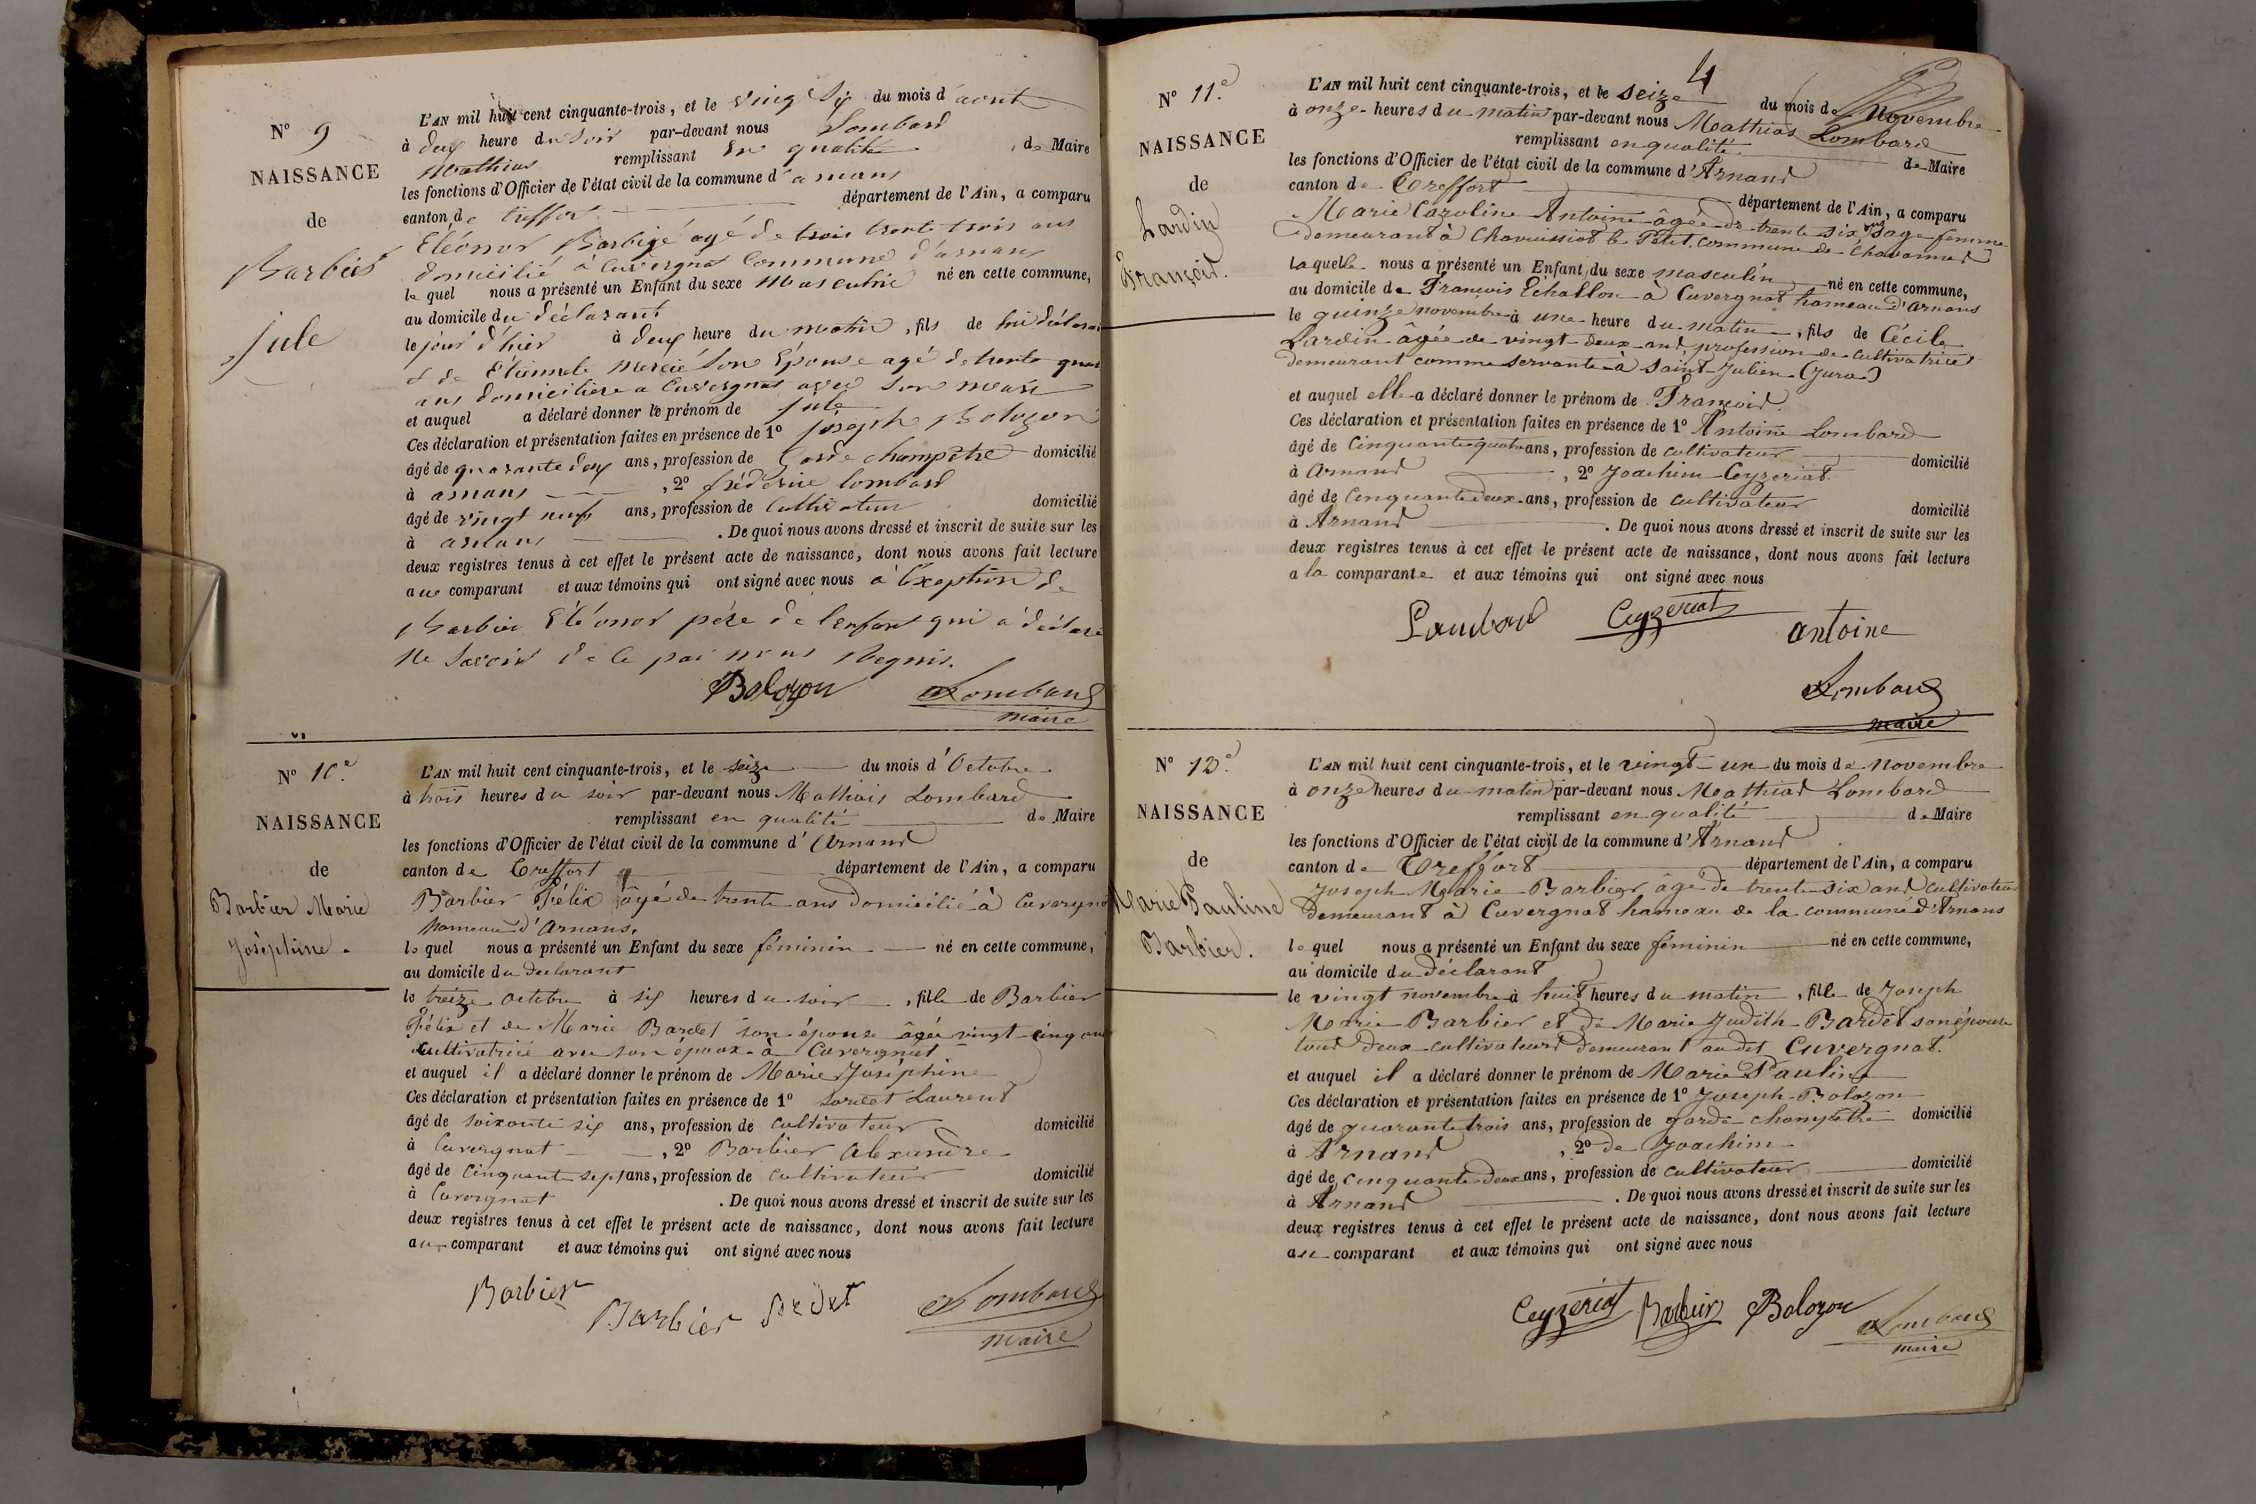 N° 9
NAISSANCE
de
Barbier
Jule
L'AN mil huit cent cinquante-trois, et le vingt six du mois d'aout
à deux heure du soir par-devant nous Lombard
Mathias remplissant en qualité de Maire
les fonctions d'Officier de l'état civil de la commune d'arnans
canton de treffort département de l'Ain, a comparu
Eléonor Barbier agé de trois trente trois ans
domicilié à Cuvergnat Commune d'arnans
le quel nous a présenté un Enfant du sexe Masculin né en cette commune,
au domicile du déclarant
le jour d'hier à deux heure du matin, fils de lui déclarant
et de Etiennete Mercié son Epouse agé de trente quatre
ans domiciliere a Cuvergnat avec son mari
et auquel a déclaré donner le prénom de Jule
Ces déclaration et présentation faites en présence de 1° Joseph Bolozon
âgé de quarante deux ans, profession de Garde champêtre domicilié
à arnans, 2° fréderic lombard
âgé de vingt neuf ans, profession de Cultivateur domicilié
à arnans. De quoi nous avons dressé et inscrit de suite sur les
deux registres tenus à cet effet le présent acte de naissance, dont nous avons fait lecture
au comparant et aux témoins qui ont signé avec nous à l'exeption de
Barbier Eléonor père de l'enfant qui a déclaré
Ne Savoir de ce par nous Requis.
Bolozon Lombard
maire
N° 10e
NAISSANCE
de
Barbier Marie
Joséphine.
L'AN mil huit cent cinquante-trois, et le seize du mois d'Octobre
à trois heures du soir par-devant nous Mathias Lombard
remplissant en qualité de Maire
les fonctions d'Officier de l'état civil de la commune d'Arnans
canton de Treffort département de l'Ain, a comparu
Barbier Félix âgé de trente ans domicilié à Cuvergnat
hameau d'Arnans.
le quel nous a présenté un Enfant du sexe féminin né en cette commune,
au domicile du déclarant
le treize octobre à six heures du soir, fille de Barbier
Félix et de Marie Bardet son épouse âgée vingt-cinq ans
cultivatrice avec son époux à Cuvergnat
et auquel il a déclaré donner le prénom de Marie Joséphine
Ces déclaration et présentation faites en présence de 1° Laurent
âgé de soixante six ans, profession de cultivateur domicilié
à Cuvergnat, 2° Barbier Alexandre
âgé de cinquante sept ans, profession de cultivateur domicilié
à Cuvergnat. De quoi nous avons dressé et inscrit de suite sur les
deux registres tenus à cet effet le présent acte de naissance, dont nous avons fait lecture
au comparant et aux témoins qui ont signé avec nous
Barbier Barbier Lombard
maire
4
N° 11e
NAISSANCE
de
Lardin
François.
L'AN mil huit cent cinquante-trois, et le seize du mois de Novembre
à onze heures du matin par-devant nous Mathias Lombard
remplissant en qualité de Maire
les fonctions d'Officier de l'état civil de la commune d'Arnans
canton de Treffort département de l'Ain, a comparu
Marie Caroline Antoine âgée de trente six ans sage femme
demeurant à Chavuissiat le Petit, commune de Chavannes
laquelle nous a présenté un Enfant du sexe masculin né en cette commune,
au domicile de François Echallon à Cuvergnat hameau d'Arnans
le quinze novembre à une heure du matin, fils de Cécile
Lardin âgée de vingt-deux ans, profession de cultivatrice
demeurant comme servante à Saint-Julien (Jura)
et auquel elle a déclaré donner le prénom de François.
Ces déclaration et présentation faites en présence de 1° Antoine Lombard
âgé de cinquante quatre ans, profession de cultivateur domicilié
à Arnans, 2° Joachim Ceyzeriat
âgé de cinquante deux ans, profession de cultivateur domicilié
à Arnans. De quoi nous avons dressé et inscrit de suite sur les
deux registres tenus à cet effet le présent acte de naissance, dont nous avons fait lecture
a la comparante et aux témoins qui ont signé avec nous
Lombard Ceyzeriat antoine
Lombard
maire
N° 12e
NAISSANCE
de
Marie Pauline
Barbier.
L'AN mil huit cent cinquante-trois, et le vingt-un du mois de novembre
à onze heures du matin par-devant nous Mathias Lombard
remplissant en qualité de Maire
les fonctions d'Officier de l'état civil de la commune d'Arnans
canton de Treffort département de l'Ain, a comparu
Joseph Marie Barbier âgé de trente-six ans cultivateur
demeurant à Cuvergnat hameau de la commune d'Arnans
le quel nous a présenté un Enfant du sexe féminin né en cette commune,
au domicile du déclarant
le vingt novembre à huit heures du matin, fille de Joseph
Marie Barbier et de Marie Judith Bardet son épouse
tous deux cultivateurs demeurant audit Cuvergnat.
et auquel il a déclaré donner le prénom de Marie Pauline
Ces déclaration et présentation faites en présence de 1° Joseph Bolozon
âgé de quarante trois ans, profession de garde champêtre domicilié
à Arnans, 2° de Joachim
âgé de cinquante-deux ans, profession de cultivateur domicilié
à Arnans. De quoi nous avons dressé et inscrit de suite sur les
deux registres tenus à cet effet le présent acte de naissance, dont nous avons fait lecture
au comparant et aux témoins qui ont signé avec nous
Ceyzeriat Barbier Bolozon Lombard
maire